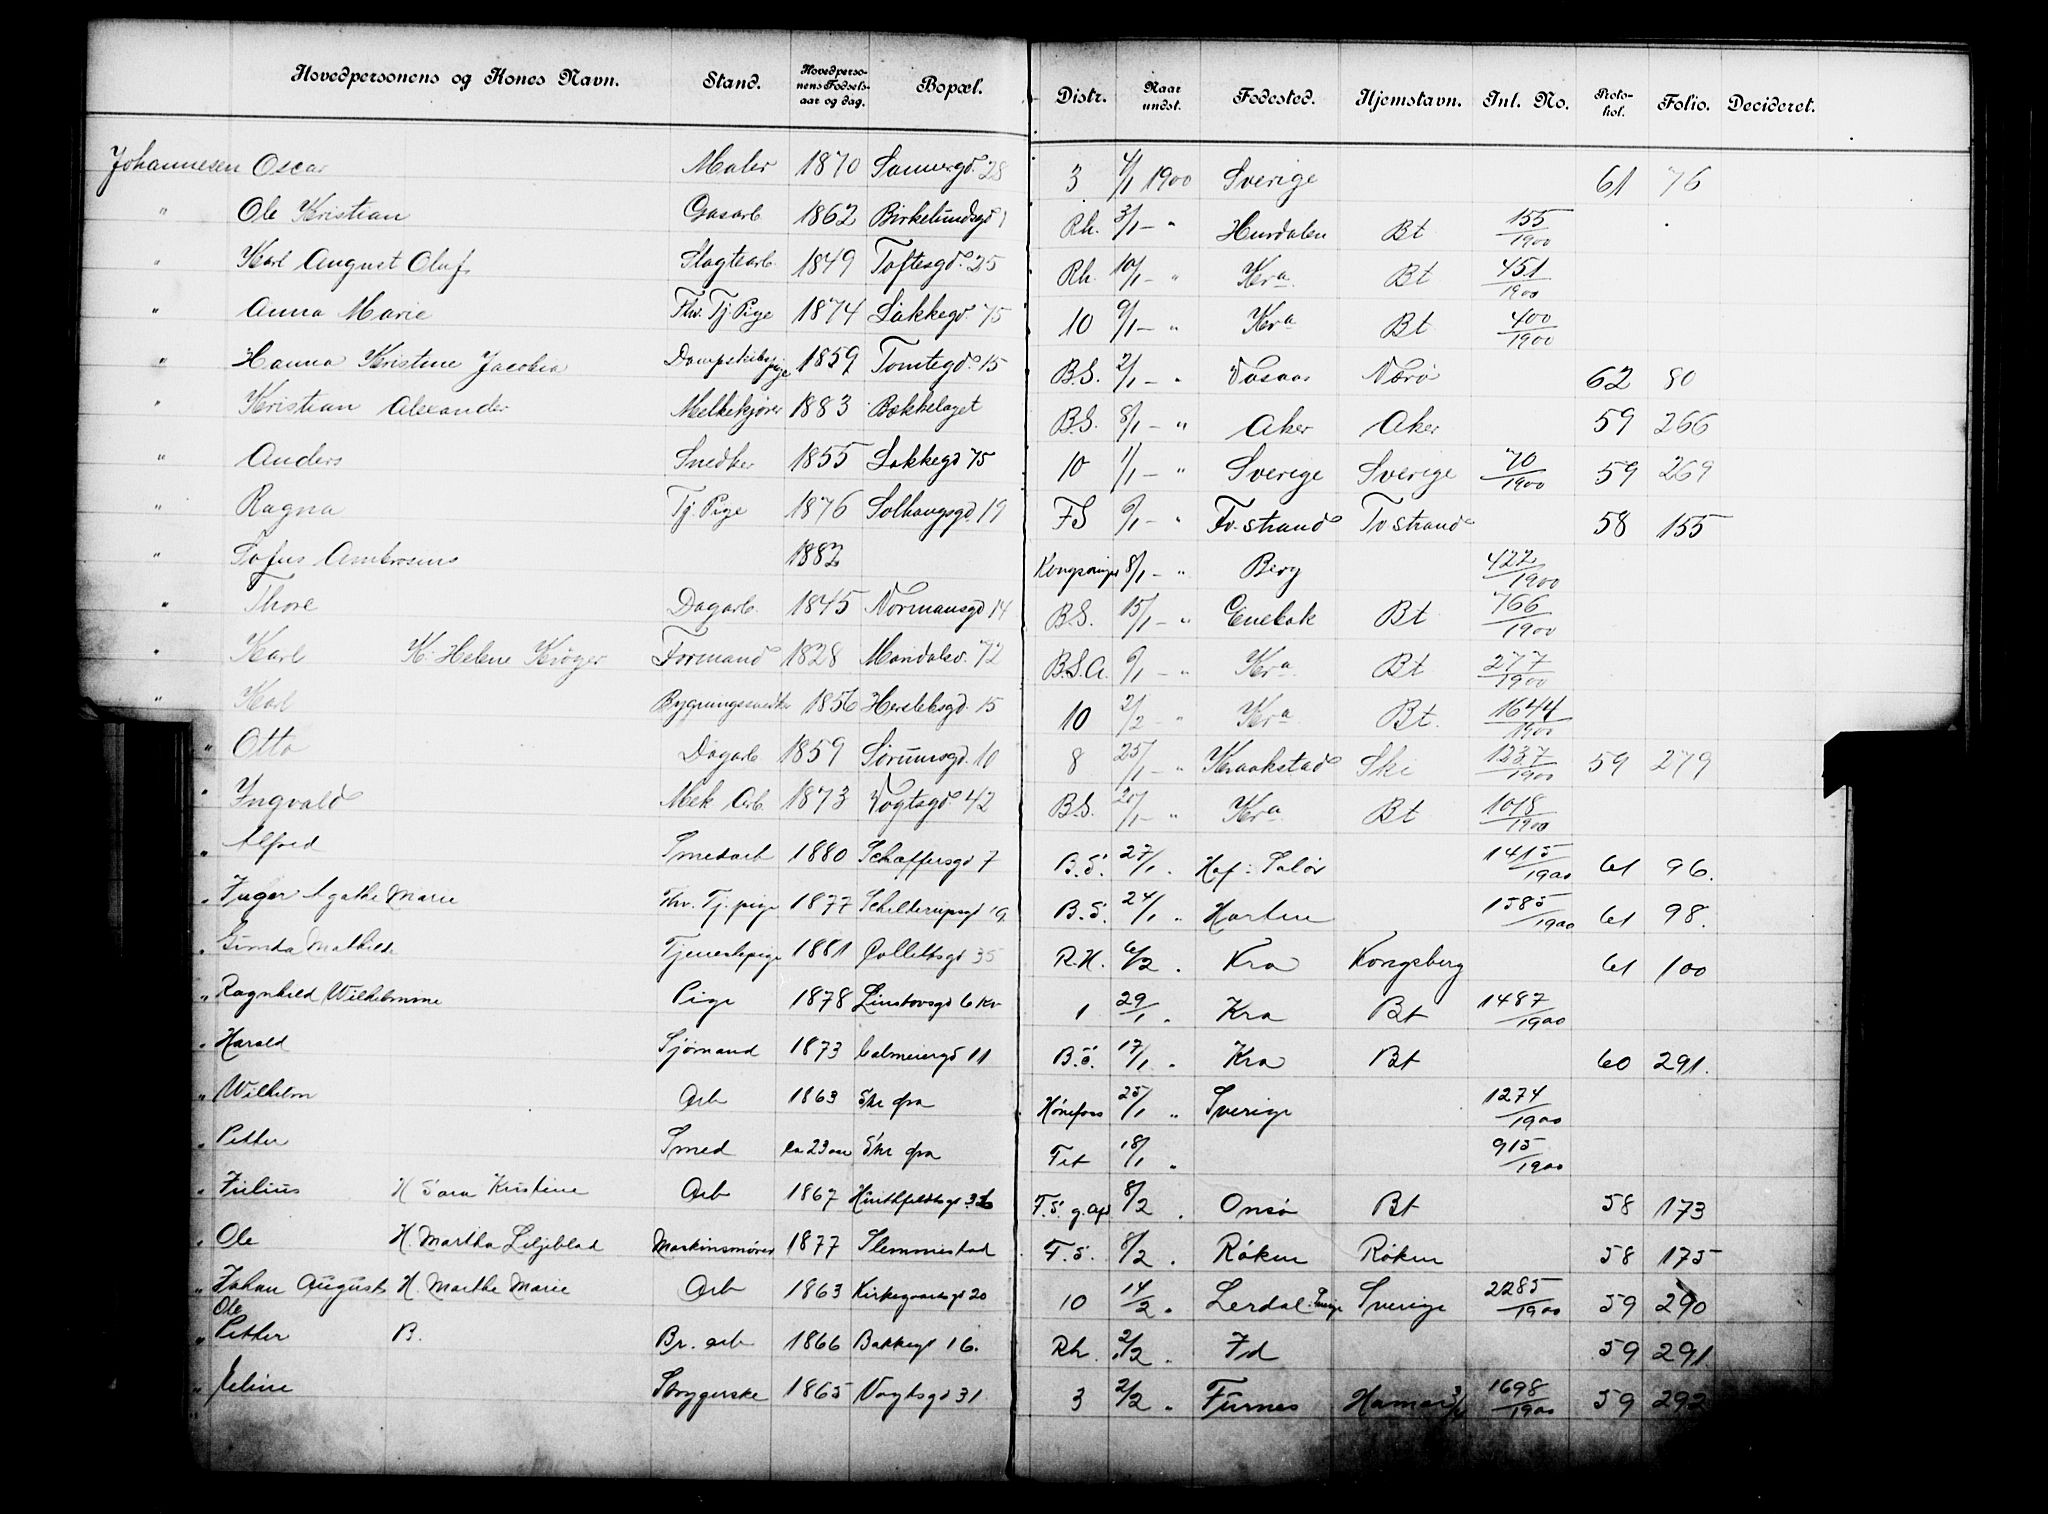 Hovedpersonens og Kones Navn. Stand. Hovedperso-nens Fødsels-aar og dag. Bopæl. Distr. Naar undst. Fødested. Hjemstavn. Inl. No. Proto-kol. Folio. Decideret.
Johannesen Oscar Maler 1870 Sannergd. 28 3 4/1 1900 Sverige 61 76
" Ole Kristian Gasarb 1862 Birkelundsgd 1 Rh. 3/1 - " Hurdalen Bt 155/1900
" Karl August Oluf Slagtearb. 1849 Toftesgd. 25 Rh. 10/1 - " Kra. Bt 451/1900
" Anna Marie Fhv. Tj. Pige 1874 Lakkegd. 75 10 9/1 - " Kra Bt 400/1900
" Hanna Kristine Jacobia Dampskibspige 1859 Tomtegd. 15 B.S. 2/1 - " Nærø 62 80
" Kristian Alexander Melkekjører 1883 Bækkelaget B.S. 8/1 - " Aker Aker 59 266
" Anders Snedker 1855 Lakkegd 75 10 1/1 - " Sverige Sverige 70/1900 59 269
" Ragna Tj. Pige 1876 Solhaugsgd 19 FS 6/1 - " Tv. strand Tv strand 58 155
" Tofus Ambrosius 1882 Kongsvinger 8/1 - " Berg 422/1900
" Thore Dagarb. 1845 Normansgd 14 B.S. 15/1 - " Enebak Bt 766/1900
" Karl K. Helene Krøger Formand 1828 Mandalsv. 72 B.S.A. 6/1 - " Kra. Bt 277/1900
" Karl Bygningssnedker 1856 Herslebsgd. 15 10 2/2 - " Kra Bt. 1644/1900
" Otto Dagarb 1859 Sørumsgd. 10 8 25/1 - " Kraakstad Ski 1237/1900 59 279
" Ingvald Mek Arb. 1873 Vogtsgd 42 B.S. 20/1 - " Kra Bt 1018/1900
" Alfred Smedarb 1880 Schæffersgd 7 B.S. 27/1 . Hof: Solør 1415/1900 61 96.
" Inger Agathe Marie Fhv. Tj. pige 1877 Schilderupsgd 19 B.S. 24/1 " Horten 1585/1900 61 98.
" Gunda Mathilde Tjenestepige 1881 Collettsgd 35 R.H. 6/2 . Kra Kongsberg 61 100
" Ragnhild Wilhelmine Pige 1878 Linstowsgd 6 Kv 1 29/1 " Kra Bt 1487/1900
" Harald Sjømand 1873 Calmeyergd 11 B.S. 17/1 " Kra Bt 60 291.
" Wilhelm Arb 1863 Skr fra Hønefoss 25/1 " Sverige 1274/1900
" Petter Smed ca 23 aar Skr fra Fet 18/1 " 915/1900
" Julius H Sara Kristine Arb 1867 Huitfeldtsgd 32b F.S. g. Afd. 8/2 . Onsø Bt 58 173
" Ole H. Martha Liljeblad Maskinsmører 1877 Slemmestad F.S. 8/2 . Røken Røken 58 175
" Johan August H. Marthe Marie Arb 1863 Kirkegaardsgd 20 10 14/2 " Lerdal Sverige Sverige 2285/1900 59 290
" Ole Petter B. Br. arb 1866 Bakkegd 16. Rh. 2/2 . Id 59 291
" Jeline Strygerske 1865 Vogtsgd 31. 3 2/2 " Furnes Hamar 1698/1900 59 292
"